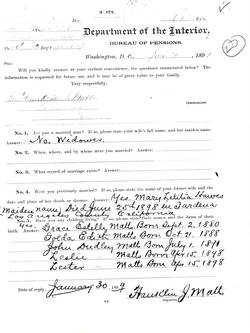 Department of the Interior,
BUREAU OF PENSIONS,
Washington, D. C.,
Will you kindly answer, at your earliest convenience, the questions enumerated below? The
information is requested for future use, and it may be of great value to your family.
Very respectfully,
Commissioner
No. 1. Are you a married man? If so, please state your wife's full name, and her maiden name.
Answer: No. Widower.
No. 2. When, where, and by whom were you married? Answer:
No. 3. What record of marriage exists? Answer:
No. 4. Were you previously married? If so, please state the name of your former wife and the
date and place of her death or divorce. Answer: Yes. Mary Letitia
Maiden name. Died June 20th 1898 in Gardena
Los Angeles County California
Yes. Grace Estelle Matts Born Sept. 2. 1880
Golda Edith Matts Born Oct. 21. 1888
John Dudley Matts Born July 1.
Leslie Matts Born Apr. 15. 1898
Lester Matts Born Apr. 15. 1898
Date of reply, January 30.
Franklin J. Matt